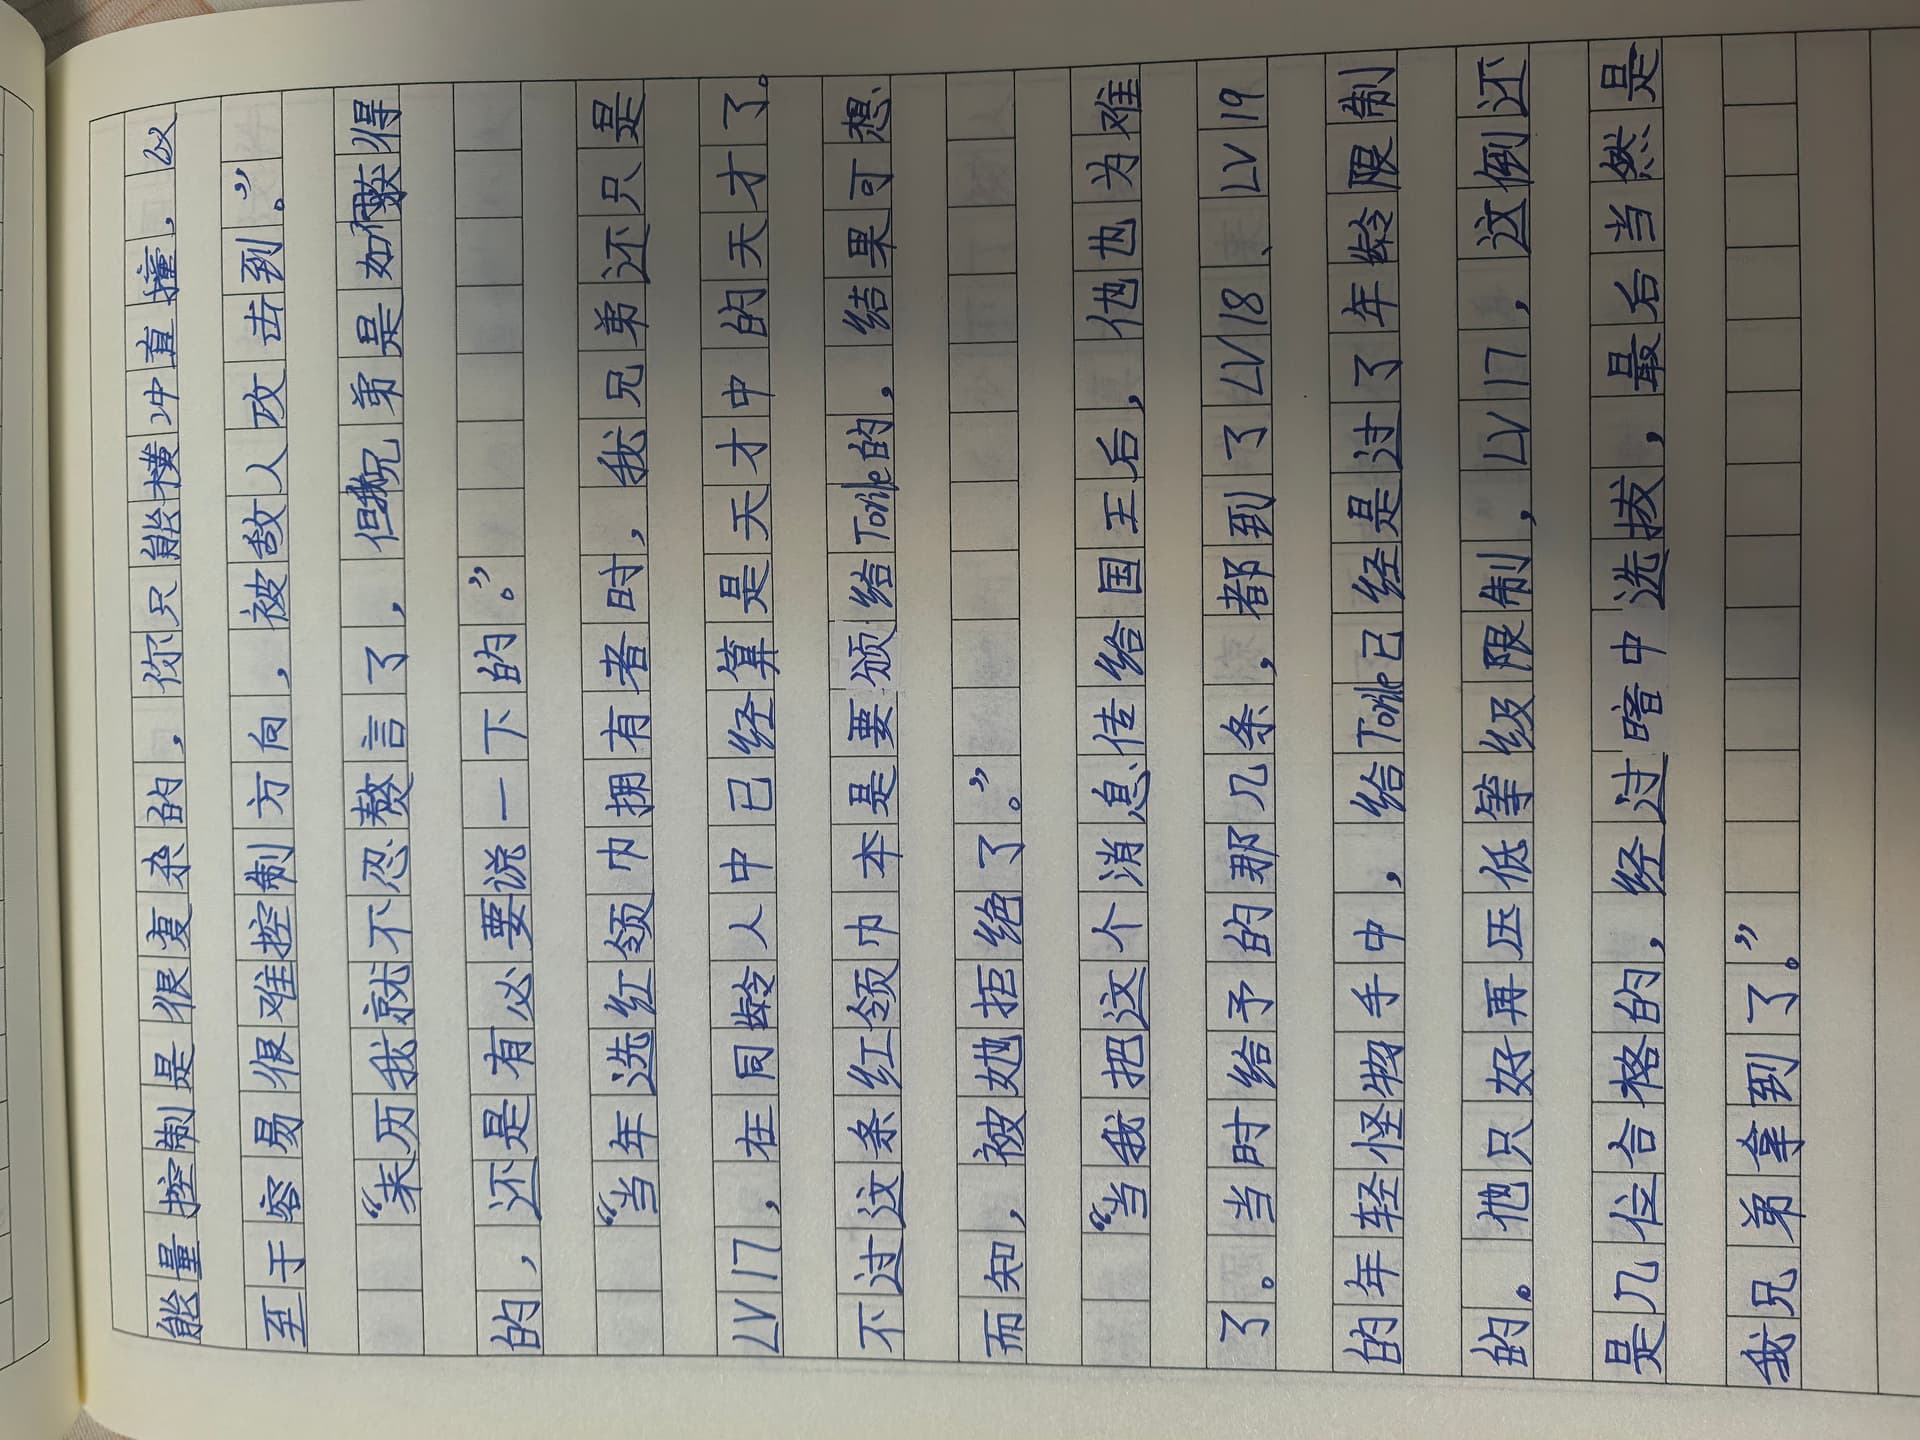 能量控制是很复杂的，你只能横冲直撞，以
至于容易很难控制方向，被敌人攻击到。”
“来历我就不忍赘言了，但我兄弟是如何获得
的，还是有必要说一下的。”
“当年选红领巾拥有者时，我兄弟还只是
LV17，在同龄人中已经算是天才中的天才了。
不过这条红领巾本是要颁给Tonile的，结果可想
而知，被她拒绝了。”
“当我把这个消息传给国王后，他也为难
了。当时给予的那几条，都到了LV18、LV19
的年轻怪物手中，给Tonile已经是过了年龄限制
的。他只好再压低等级限制，LV17，这倒还
是几位合格的，经过暗中选拔，最后当然是
我兄弟拿到了。”